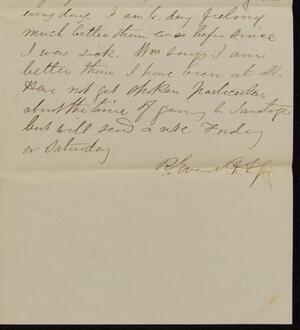 every day. I am to day feeling
much better than ever before since
I was sick. Wm says I am
better than I have been at all.
Have not yet spoken particular
about the time of going to Saratoga
but will send a note Friday
or Saturday.
R. Everett